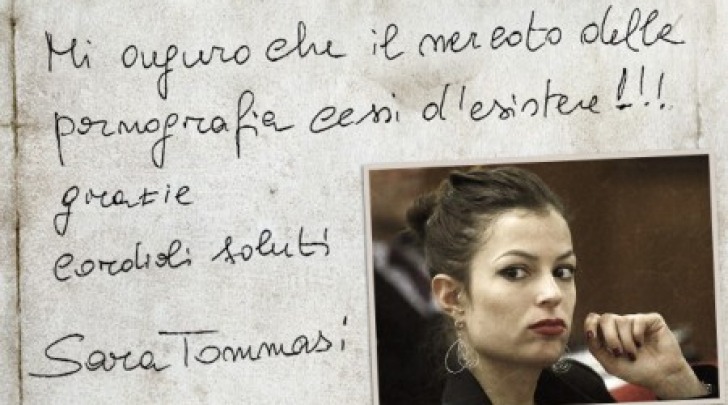 Mi auguro che il mercato della
pornografia cessi d'esistere!!!
grazie
cordiali saluti
Sara Tommasi